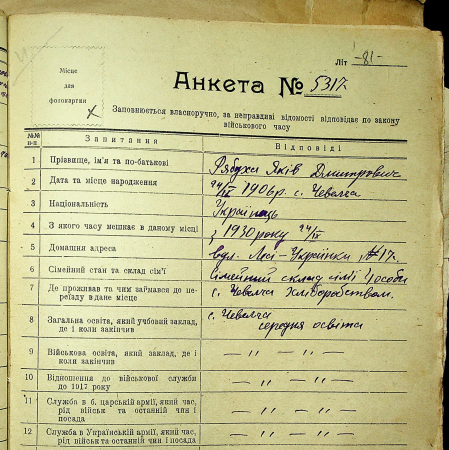 Літ -81-
Місце
для
фотокартки
Анкета № 5317
Заповнюється власноручно, за неправдиві відомості відповідає по закону
військового часу
№№ п-п Запитання Відповіді
1 Прізвище, ім'я та по-батькові Рябуха Яків Дмитрович
2 Дата та місце народження 24/IX 1906 р. с. Чевелча
3 Національність Українець
4 З якого часу мешкає в даному місці з 1930 року 24/IX
5 Домашня адреса вул. Лесі-Українки, №17.
6 Сімейний стан та склад сім'ї Сімейний склад сімї 4 особи
7 Де проживав та чим займався до пе- с. Чевелча Хліборобством.
реїзду в дане місце
8 Загальна освіта, який учбовий заклад, с. Чевелча
де і коли закінчив середня освіта
9 Військова освіта, який заклад, де і — „ — „ —
коли закінчив
10 Відношення до військової служби — „ — „ —
до 1917 року
11 Служба в б. царській армії, який час, — „ — „ —
рід військ та останній чин і
посада
12 Служба в Українській армії, який час, — „ — „ —
рід військ та останній чин і посада